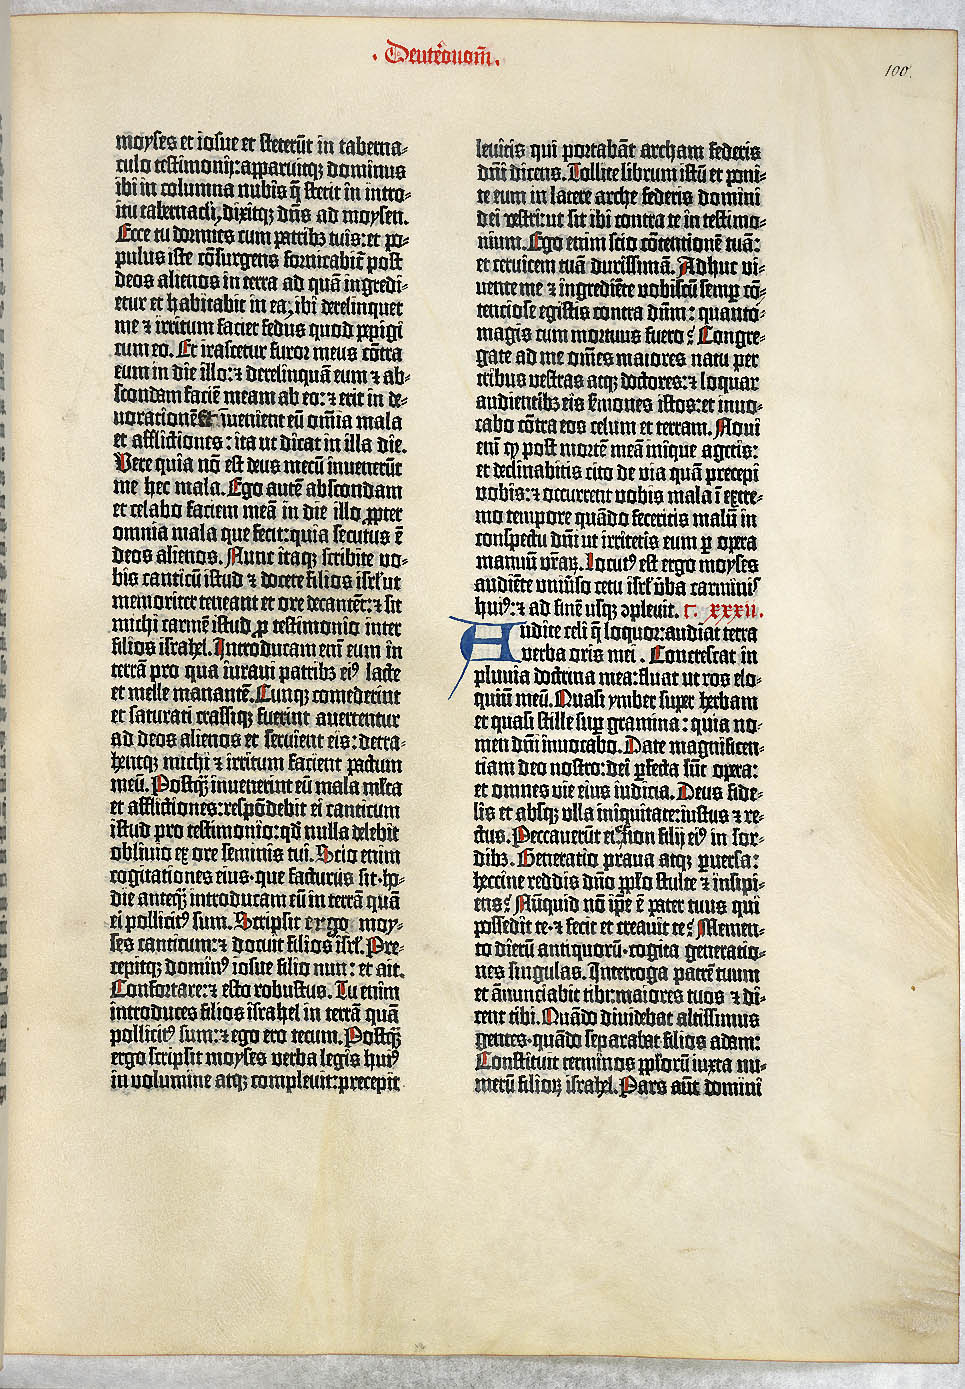 Deuteronom̄.
100.
moyses et iosue et steterūt in taberna-
culo testimonij: apparuitqȝ dominus
ibi in columna nubis q̄ stetit in intro-
itu tabernacli, dixitqȝ dn̄s ad moysen.
Ecce tu dormies cum patribȝ tuis: et po-
pulus iste cōsurgens fornicabit̄ post
deos alienos in terra ad quā ingredi-
etur et habitabit in ea, ibi derelinquet
me ⁊ irritum faciet fedus quod pepigi
cum eo. Et irascetur furor meus cōtra
eum in die illo: ⁊ derelinquā eum ⁊ ab-
scondam faciē meam ab eo: ⁊ erit in de-
vorationē Et īvenient eū om̄ia mala
et afflictiones: ita ut dicat in illa die.
Vere quia nō est deus mecū invenerūt
me hec mala. Ego autē abscondam
et celabo faciem meā in die illo ꝓpter
omnia mala que fecit: quia secutus ē
deos alienos. Nunc itaqȝ scribite vo-
bis canticū istud ⁊ docete filios isrl̄ ut
memoriter teneant et ore decantēt: ⁊ sit
michi carmē istud ꝓ testimonio inter
filios israhel. Introducam em̄ eum in
terrā pro qua iuravi patribȝ eiꝰ lacte
et melle manantē. Cunqȝ comederint
et saturati crassiqȝ fuerint avertentur
ad deos alienos et servient eis: detra-
hentqȝ michi ⁊ irritum facient pactum
meū. Postqȝ̄ invenerint eū mala ml̄ta
et afflictiones: respōdebit ei canticum
istud pro testimonio: qd̄ nulla delebit
oblivio ex ore seminis tui. Scio enim
cogitationes eius · que facturus sit · ho-
die anteqȝ̄ introducam eū in terrā quā
ei pollicitꝰ sum. Scripsit ergo moy-
ses canticum: ⁊ docuit filios isrl̄. Pre-
cepitqȝ dominꝰ iosue filio nun: et ait.
Confortare: ⁊ esto robustus. Tu enim
introduces filios israhel in terrā quā
pollicitꝰ sum: ⁊ ego ero tecum. Postqȝ̄
ergo scripsit moyses verba legis huiꝰ
in volumine atqȝ complevit: precepit
levitis qui portabāt archam federis
dn̄i dicens. Tollite librum istū et poni-
te eum in latere arche federis domini
dei vestri: ut sit ibi contra te in testimo-
nium. Ego enim scio cōtentionē tuā:
et cervicem tuā durissimā. Adhuc vi-
vente me ⁊ ingrediēte vobiscū semꝑ cō-
tenciose egistis contra dn̄m: quanto-
magis cum mortuus fuero? Congre-
gate ad me om̄es maiores natu per
tribus vestras atqȝ doctores: ⁊ loquar
audientibȝ eis s̄mones istos: et invo-
cabo cōtra eos celum et terram. Novi
em̄ qp̄ post mortē meā inique agetis:
et declinabitis cito de via quā precepi
vobis: ⁊ occurrent vobis mala ī extre-
mo tempore quādo feceritis malū in
conspectu dn̄i ut irritetis eum ꝑ opera
manuū vr̄aꝝ. Locutꝰ est ergo moyses
audiēte univ̄so cetu isrl̄ v̄ba carminis
huiꝰ: ⁊ ad finē usqȝ ꝯplevit. c. xxxii.
Audite celi q̄ loquor: audiat terra
verba oris mei. Concrescat in
pluvia doctrina mea: fluat ut ros elo-
quiū meū. Quasi ymber super herbam
et quasi stille suꝑ gramina: quia no-
men dn̄i invocabo. Date magnificen-
tiam deo nostro: dei ꝑfecta sūt opera:
et omnes vie eius iudicia. Deus fide-
lis et absqȝ ulla iniquitate: iustus ⁊ re-
ctus. Peccaverūt ei · non filij eiꝰ in sor-
dibȝ. Generatio prava atqȝ ꝑversa:
heccine reddis dn̄o ꝓp̄lo stulte ⁊ insipi-
ens? Nūquid nō ip̄e ē pater tuus qui
possedit te · ⁊ fecit et creavit te? Memen-
to dierū antiquorū · cogita generatio-
nes singulas. Interroga patrē tuum
et ānunciabit tibi: maiores tuos ⁊ di-
cent tibi. Quādo dividebat altissimus
gentes · quādo separabat filios adam:
Constituit terminos ꝓp̄lorū iuxta nu-
merū filioꝝ israhel. Pars aūt domini